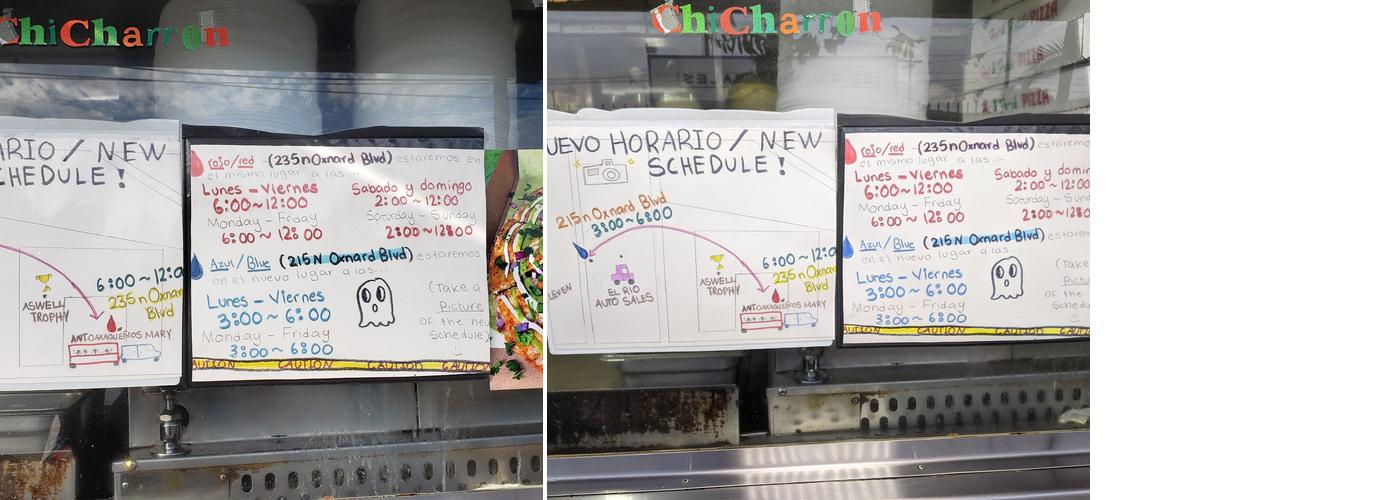 ChiCharron
ARIO / NEW
CHEDULE!
6:00~12:0
235 n Oxnar
Blvd
ASWELL
TROPHY
ANTOJOAXAQUEÑOS MARY
rojo/red - (235 n Oxnard Blvd) estaremos en
el mismo lugar a las...
Lunes - Viernes
6:00~12:00
Monday - Friday
6:00~12:00
Sabado y domingo
2:00~12:00
Saturday - Sunday
2:00~12:00
Azul/Blue (215 N Oxnard Blvd) estaremos
en el nuevo lugar a las...
Lunes - Viernes
3:00~6:00
Monday - Friday
3:00~6:00
(Take a
Picture
OF the new
Schedule)
CAUTION CAUTION CAUTION
ChiCharron
PIZZA
PIZZA
PIZZA
UEVO HORARIO / NEW
SCHEDULE!
215 n Oxnard Blvd
3:00~6:00
LEVEN
EL RIO
AUTO SALES
ASWELL
TROPHY
6:00~12:0
235 n Oxna
Blvd
ANTOJOAXAQUEÑOS MARY
rojo/red - (235 n Oxnard Blvd) estaremo
el mismo lugar a las...
Lunes - Viernes
6:00~12:00
Monday - Friday
6:00~12:00
Sabado y domin
2:00~12:00
Saturday - Sun
2:00~12:0
Azul/Blue (215 N Oxnard Blvd) estarem
en el nuevo lugar a las...
Lunes - Viernes
3:00~6:00
Monday - Friday
3:00~6:00
(Take
Pictu
OF the
Schedu
CAUTION CAUTION CAUTION